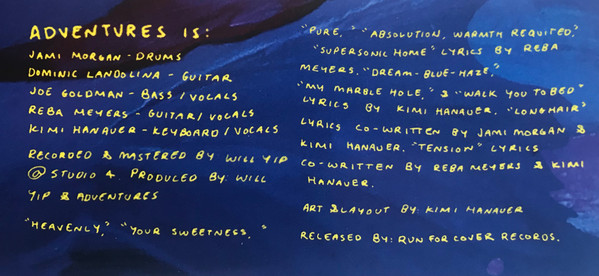 ADVENTURES IS:
JAMI MORGAN - DRUMS
DOMINIC LANDOLINA - GUITAR
JOE GOLDMAN - BASS / VOCALS
REBA MEYERS - GUITAR / VOCALS
KIMI HANAUER - KEYBOARD / VOCALS
RECORDED & MASTERED BY WILL YIP
@ STUDIO 4. PRODUCED BY: WILL
YIP & ADVENTURES
"HEAVENLY," "YOUR SWEETNESS, "
"PURE, " "ABSOLUTION, WARMTH REQUITED,"
"SUPERSONIC HOME" LYRICS BY REBA
MEYERS. "DREAM-BLUE-HAZE,"
"MY MARBLE HOLE," & "WALK YOU TO BED"
LYRICS BY KIMI HANAUER. "LONGHAIR"
LYRICS CO-WRITTEN BY JAMI MORGAN &
KIMI HANAUER. "TENSION" LYRICS
CO-WRITTEN BY REBA MEYERS & KIMI
HANAUER.
ART & LAYOUT BY: KIMI HANAUER
RELEASED BY: RUN FOR COVER RECORDS.